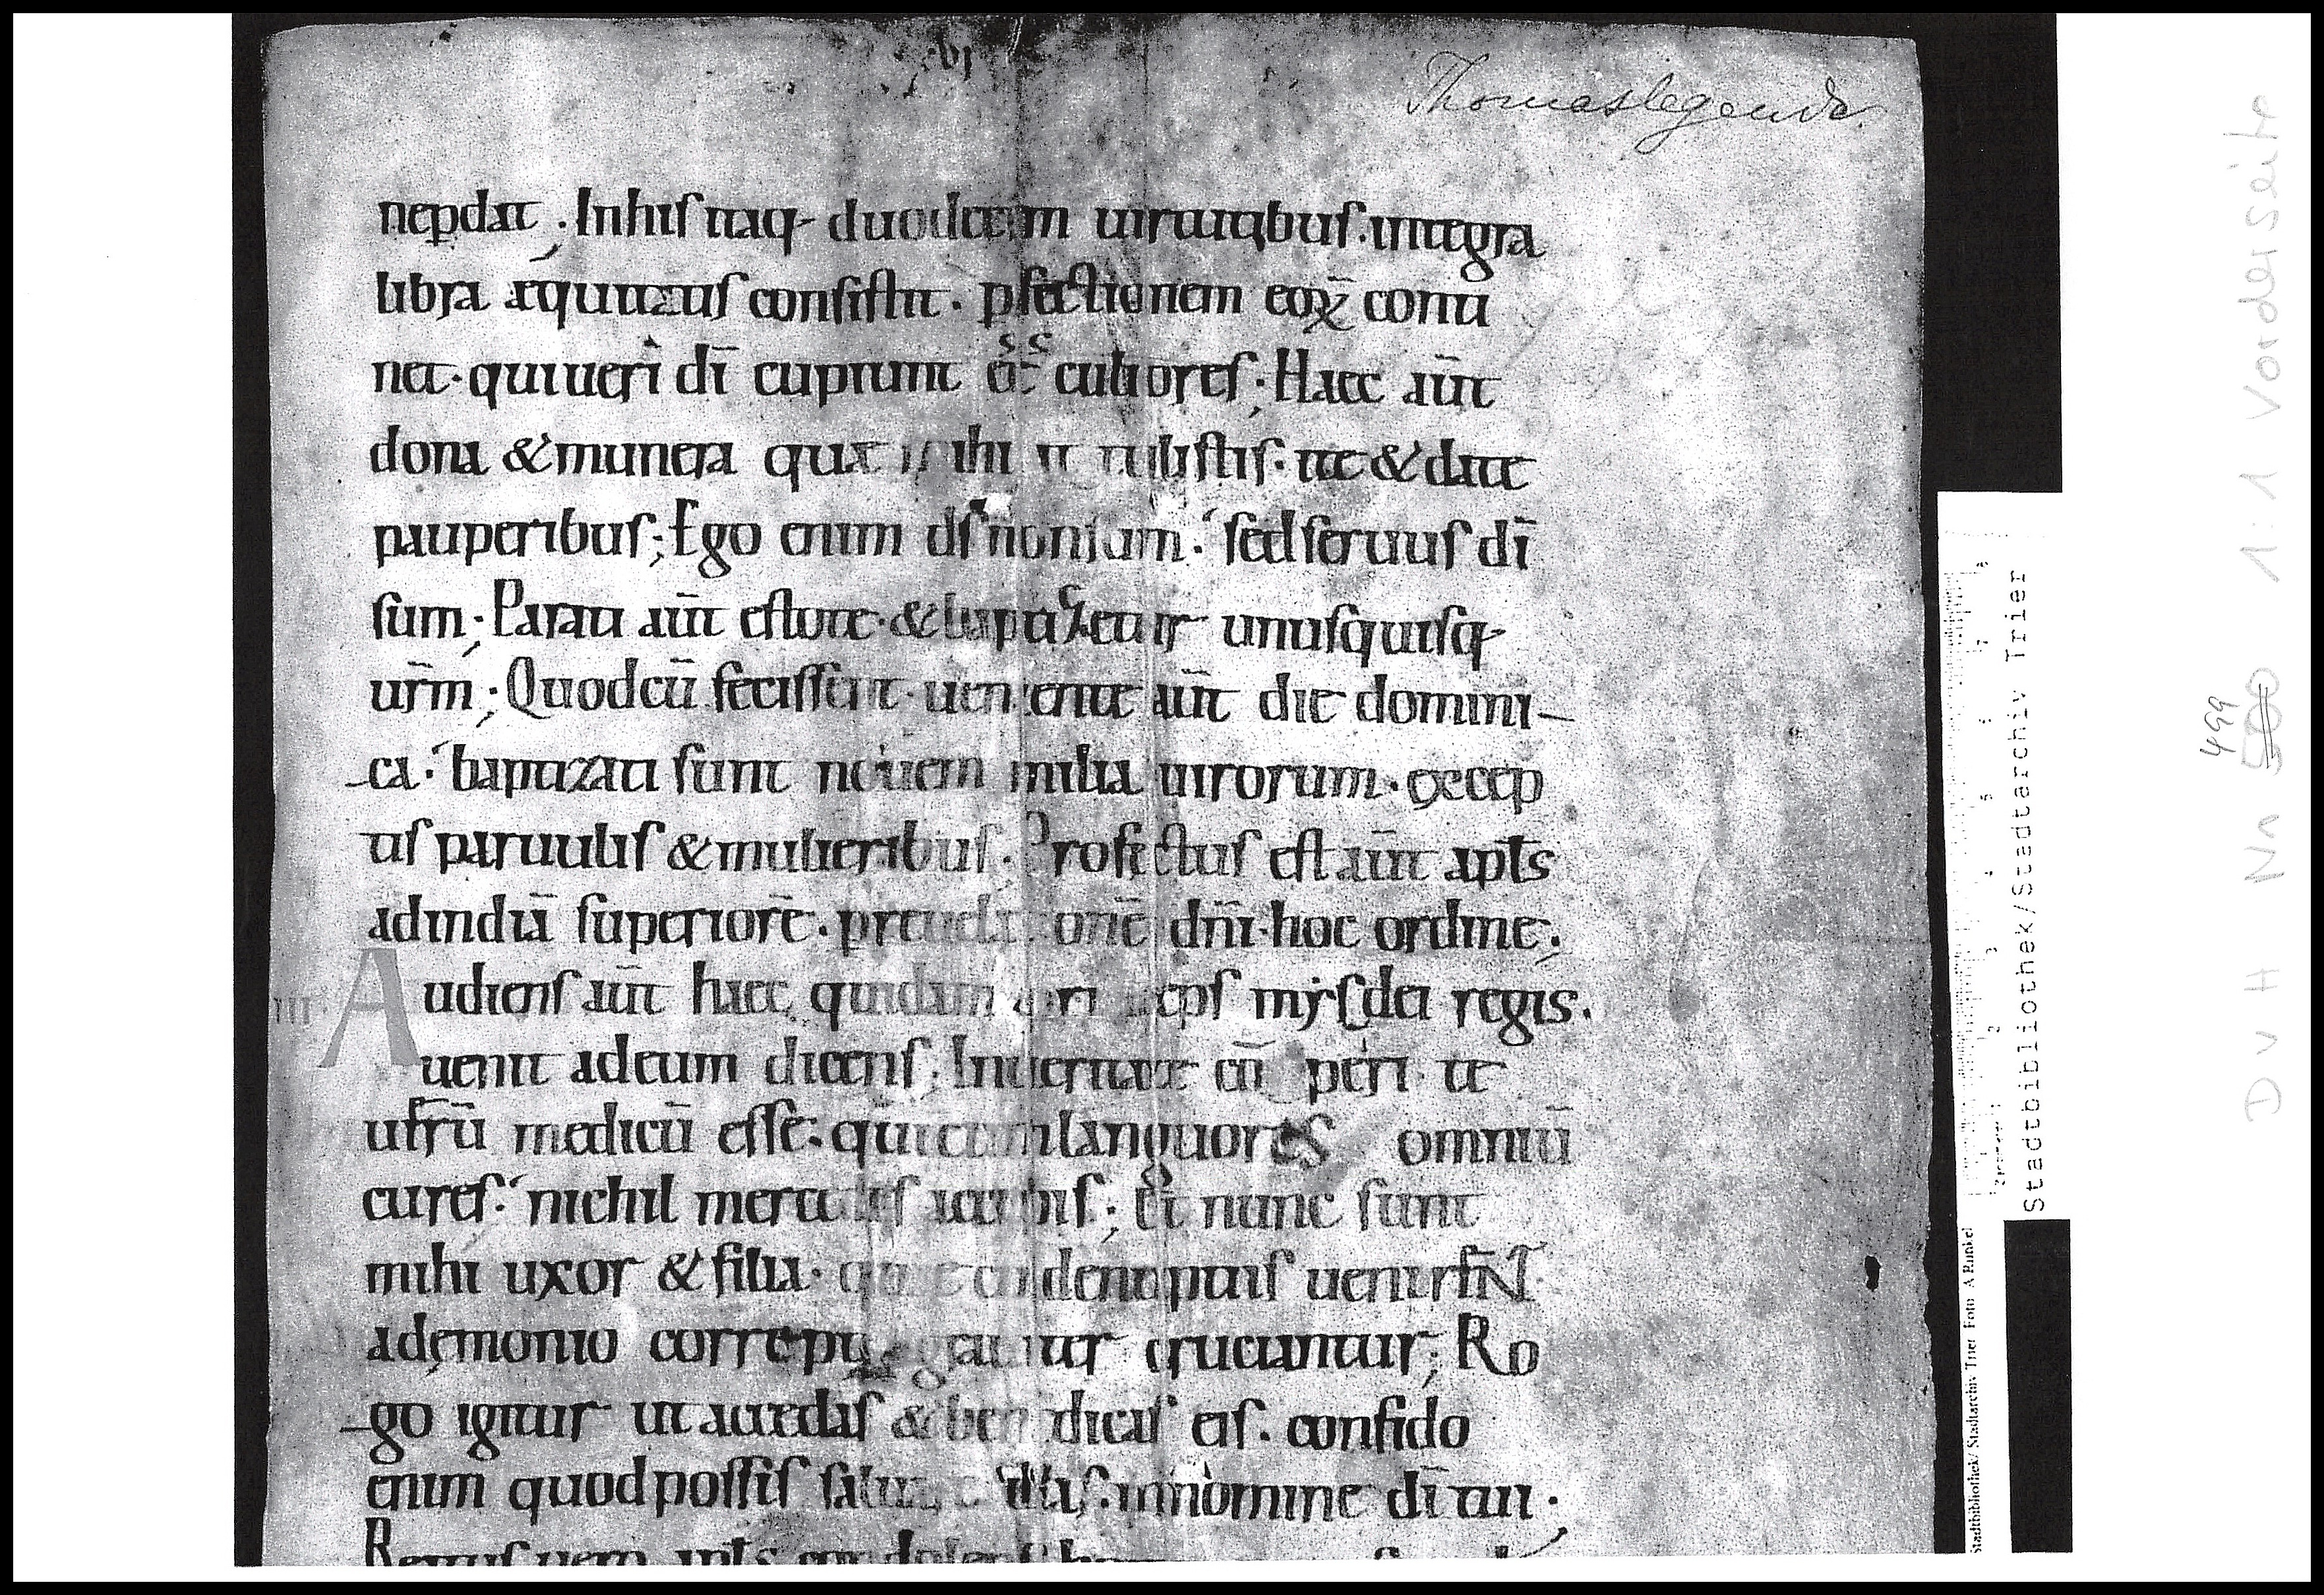 .vi.
Thomaslegende.
nep̱dat. In his itaq duodecim uirtutibus. integra
libra æquitatis consistit. p̱fectionem eoꝝ conti
net. qui ueri dī cupiunt cultores; Haec aūt
dona & munera quæ mihi ite & date
pauperibus; Ego enim ds non sum. sed seruus dī
sum; Parati aūt estote. & baptizetur unusquisq
ur̄m; Quod cū fecissent. ueniente aūt die domini-
-ca. baptizati sunt nouem milia uirorum. excep
tis paruulis & mulieribus. Profectus est aūt apl̄s
ad indiā superiorē. dn̄i. hoc ordine;
iii. Audiens aūt haec quidam mysdei regis.
uenit ad eum dicens; In ueritate cū peri te
medicū esse. languores omniū
cures. nichil accipis; Et nunc sunt
mihi uxor & filia. uenirNT
a demonio correptę cruciantur; Ro
-go igitur ut accedas & benedicas eis. confido
enim quod possis illis. in nomine dī tui.
Stadtbibliothek/Stadtarchiv Trier
Stadtbibliothek/Stadtarchiv Trier Foto A Runkel
D v H Nr 500 1:1 Vorderseite
499